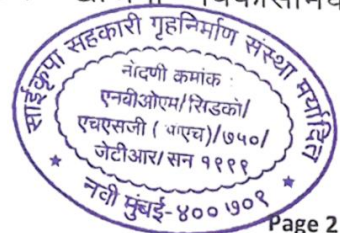 साईकृपा सहकारी गृहनिर्माण संस्था मर्यादित
नोदणी कमांक :
एनबीओएम/सिडको/
एचएसजी ( एच)/७५०/
जेटीआर/सन १९९९
नवी मुंबई-४०० ७०१
Page 2